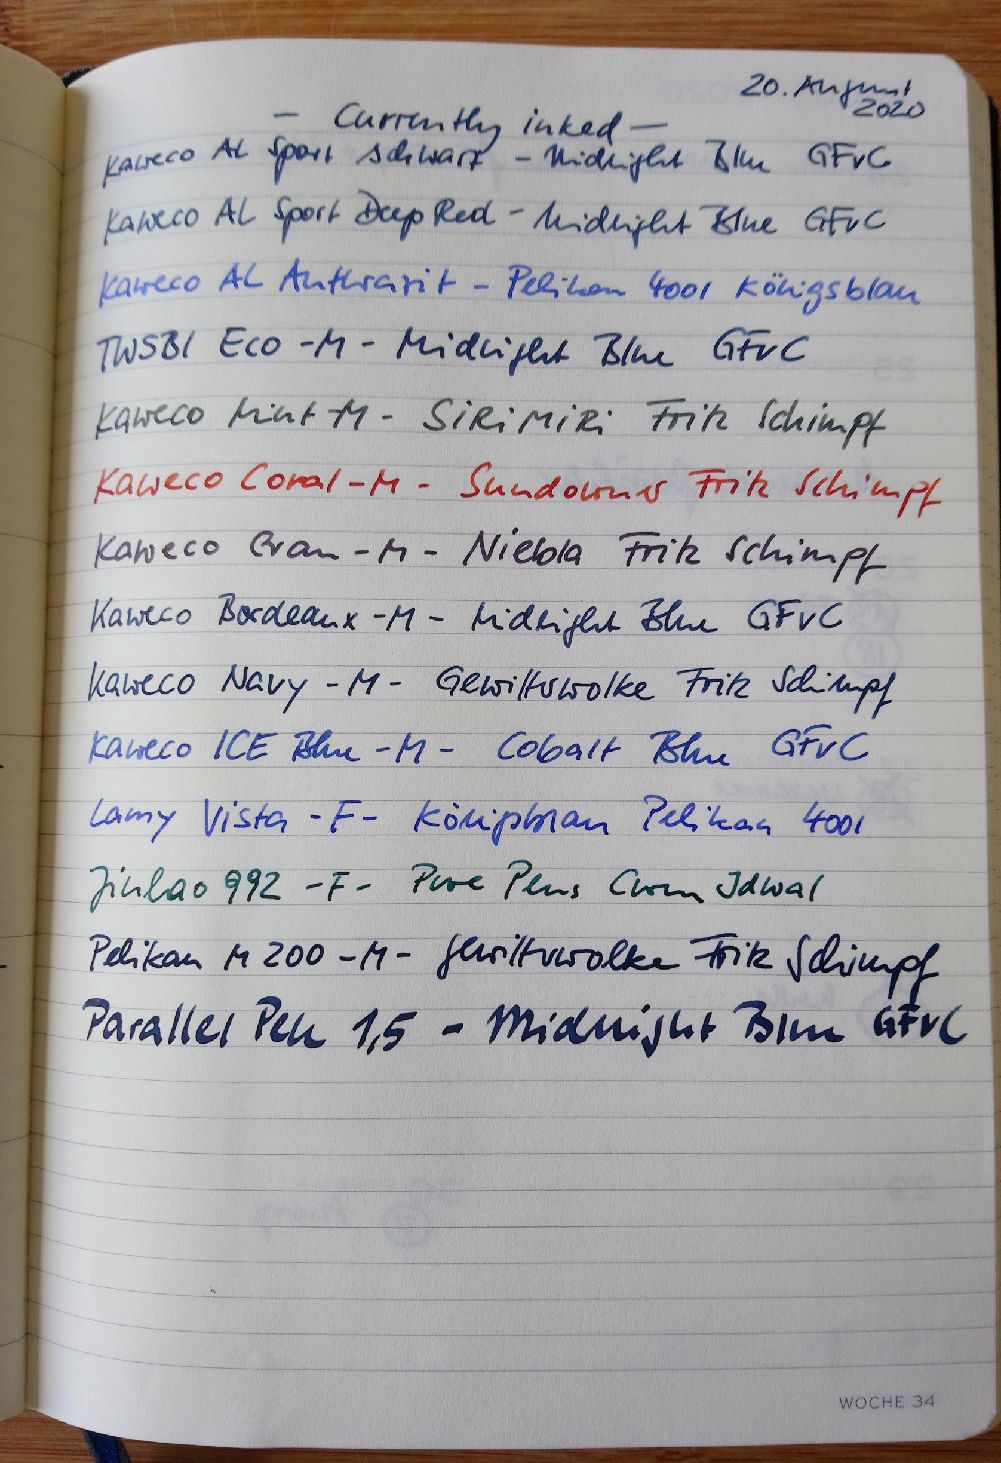 20. August
2020
- Currently inked -
Kaweco AL Sport Schwarz - Midnight Blue GFvC
Kaweco AL Sport Deep Red - Midnight Blue GFvC
Kaweco AL Anthrazit - Pelikan 4001 Königsblau
TWSBI Eco - M - Midnight Blue GFvC
Kaweco Mint - M - SiRiMiRi Fritz Schimpf
Kaweco Coral - M - Sundowner Fritz Schimpf
Kaweco Gran - M - Niebla Fritz Schimpf
Kaweco Bordeaux - M - Midnight Blue GFvC
Kaweco Navy - M - Gewitterwolke Fritz Schimpf
Kaweco ICE Blue - M - Cobalt Blue GFvC
Lamy Vista - F - Königsblau Pelikan 4001
Jinhao 992 - F - Pure Pens Cwm Idwal
Pelikan M 200 - M - Gewitterwolke Fritz Schimpf
Parallel Pen 1,5 - Midnight Blue GFvC
WOCHE 34